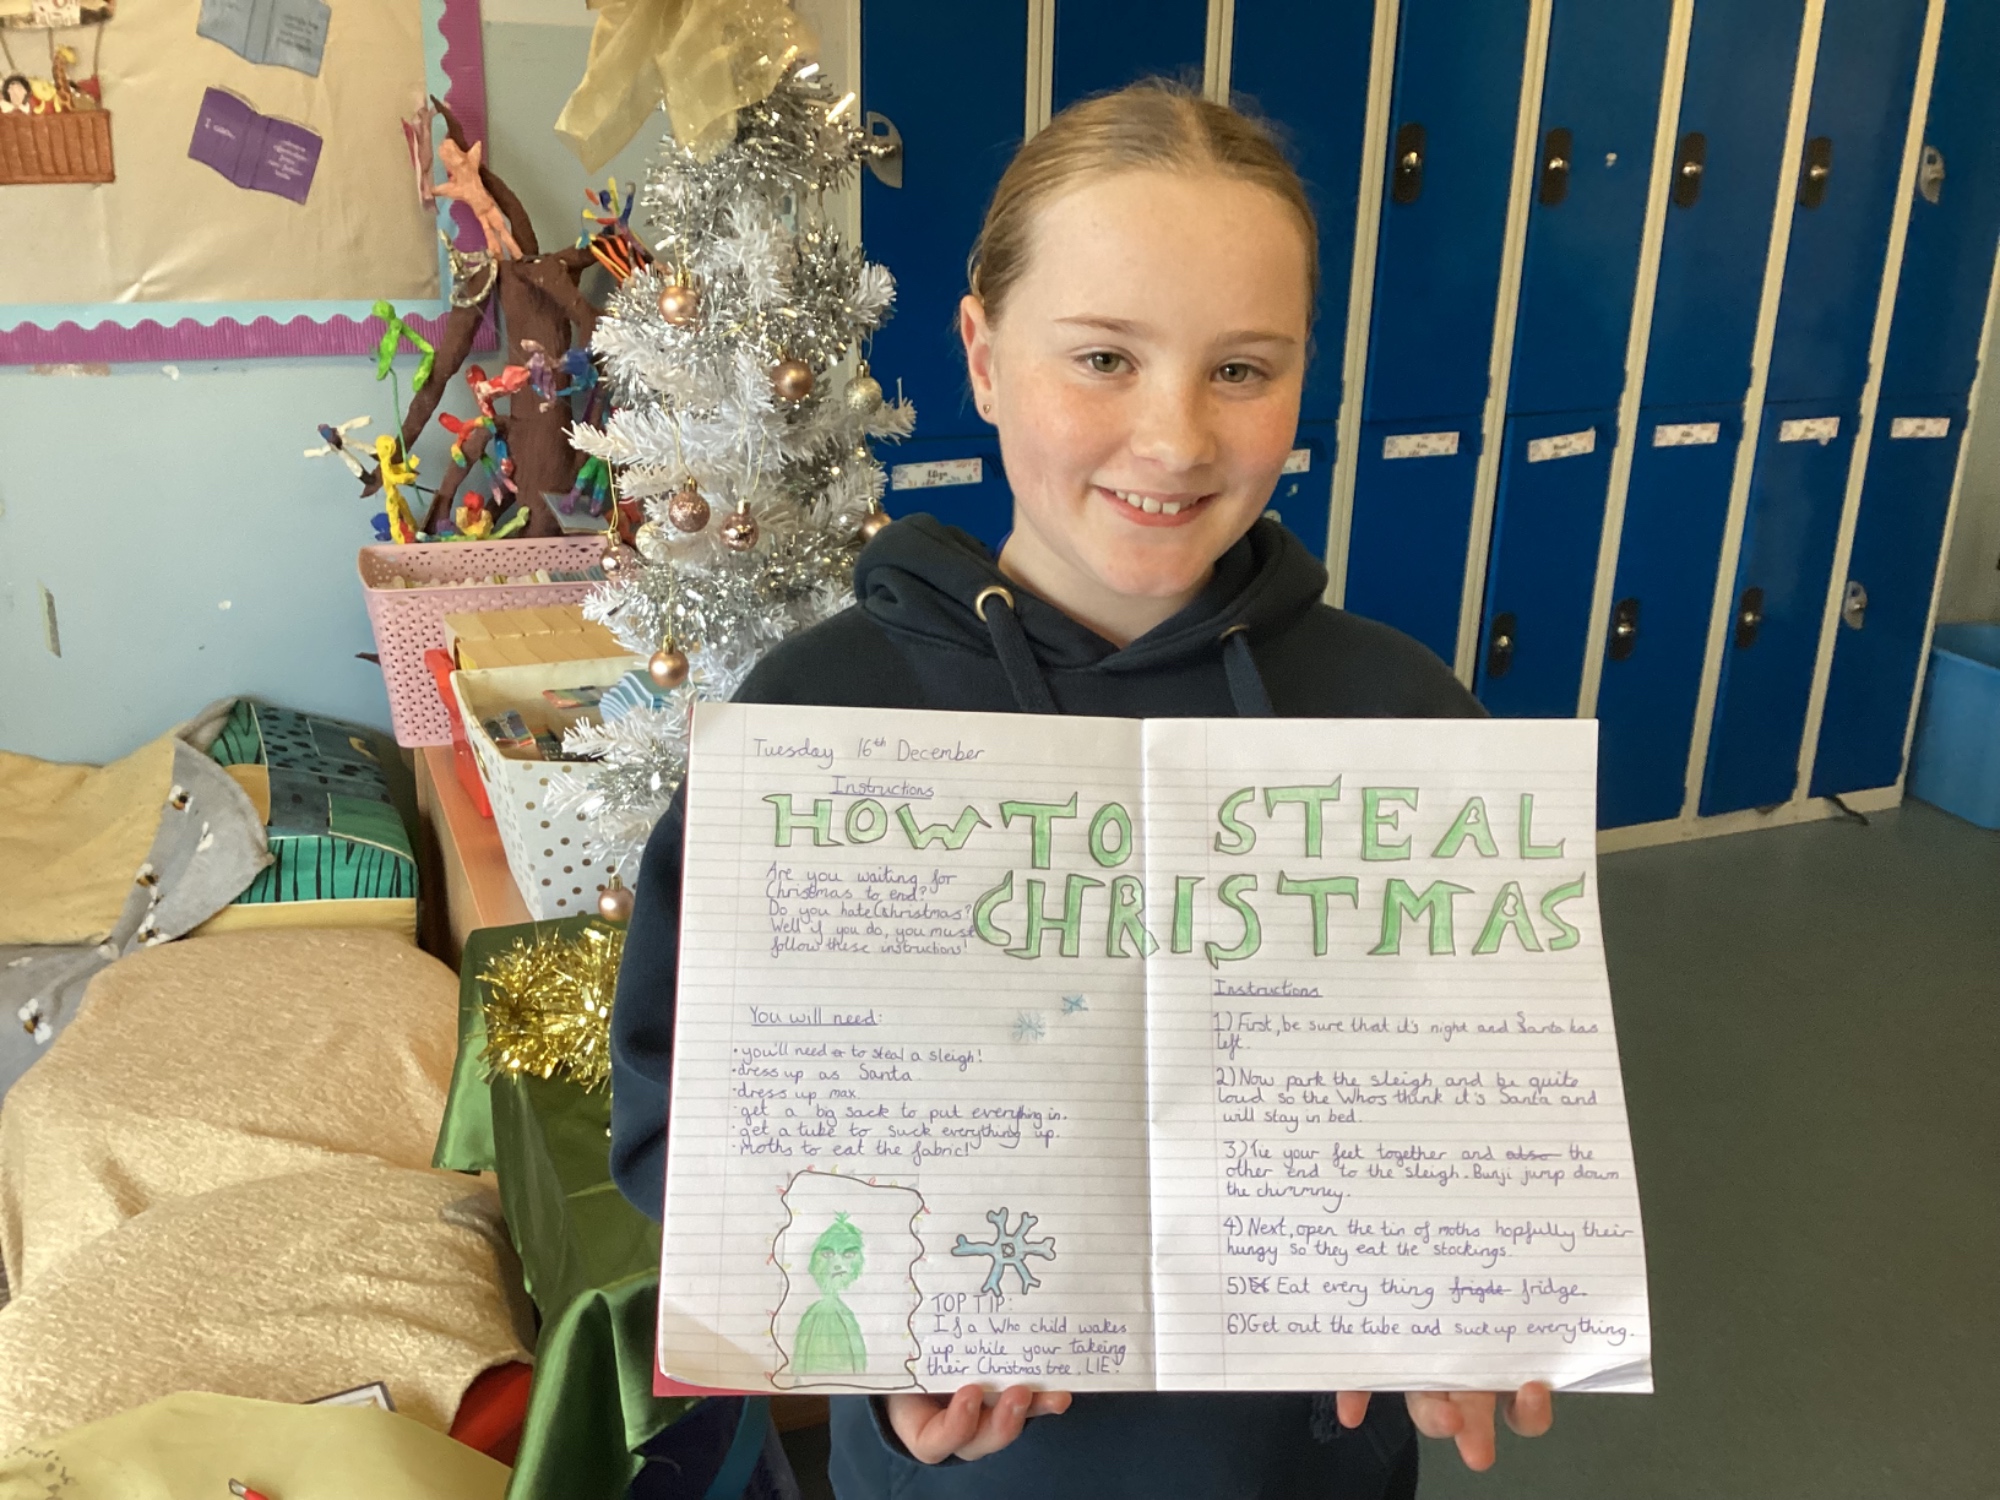 Tuesday 16th December
Instructions
HOW TO STEAL
CHRISTMAS
Are you waiting for
Christmas to end?
Do you hate Christmas?
Well if you do, you must
follow these instructions!
You will need:
• you'll need to steal a sleigh!
• dress up as Santa
• dress up max
• get a big sack to put everything in.
• get a tube to suck everything up.
• moths to eat the fabric!
TOP TIP:
If a Who child wakes
up while your takeing
their Christmas tree. LIE!
Instructions
1) First, be sure that it's night and Santa has
left.
2) Now park the sleigh and be quite
loud so the Whos think it's Santa and
will stay in bed.
3) Tie your feet together and also the
other end to the sleigh. Bunji jump down
the chimmney.
4) Next, open the tin of moths hopfully their
hungy so they eat the stockings.
5) Eat every thing frigde fridge.
6) Get out the tube and suck up everything.
I can,